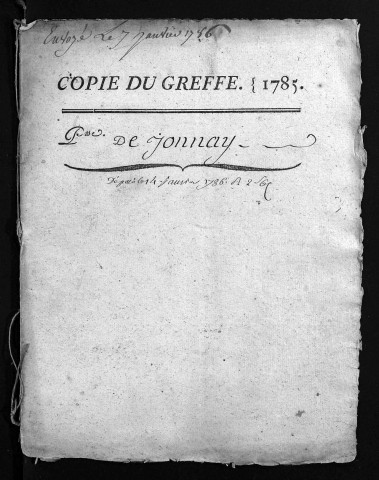 Envoyé le 7 janvier 1786
COPIE DU GREFFE. { 1785.
P.sse De Jonnay
janvier 1786